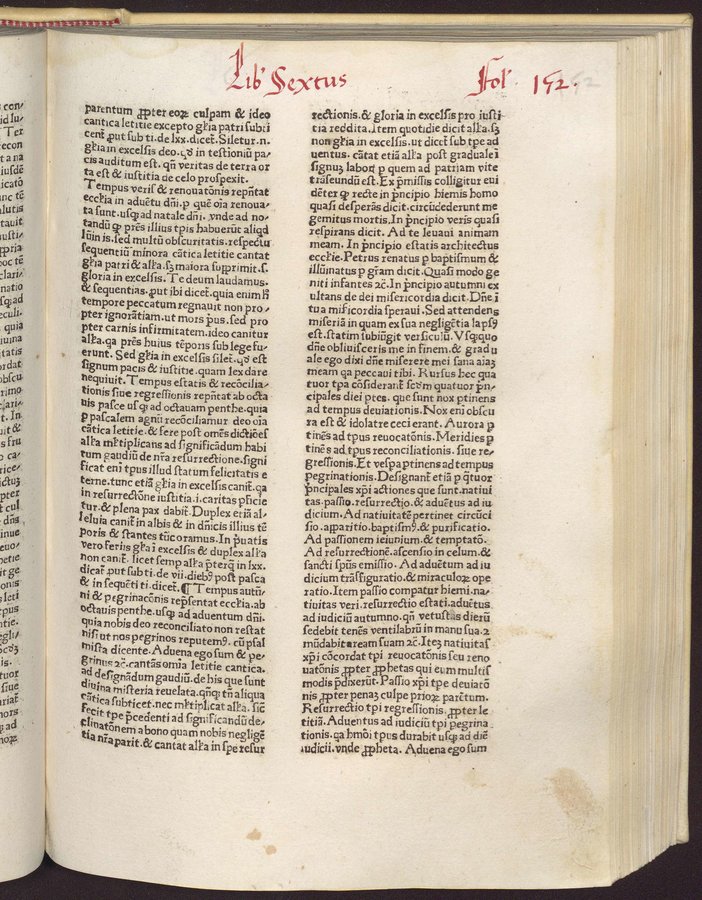 Lib' Sextus
Fol' 152.
parentum ꝓpter eoꝝ culpam & ideo
cantica letitie excepto gl'ia patri subti
cent̃ ꝓut sub ti. de lxx. dicet̃. Siletur .n.
gl'ia in excelsis deo. qd̕ in testioniũ pa
cis auditum est. qñ veritas de terra or
ta est & iustitia de celo prospexit.
Tempus veris & renouatõnis rep̃ntat
eccl'ia in aduẽtu dñi. p quẽ oĩa renoua⸗
ta sunt. usq̕ ad natale dñi. vnde ad no⸗
tandũ ꝙ pr̃es illius tp̃is habuerũt aliqd̕
lũinis. sed multũ obscuritatis. respectu
sequentiũ minora cãtica letitie cantat
gl'ia patri & all'a. sꝫ maiora supprimit. s.
gloria in excelsis. Te deum laudamus.
& sequentias. ꝓut ibi dicet̃. quia enim h̃
tempore peccatum regnauit non pro⸗
pter ignorãtiam. ut mors p̃us. sed pro
pter carnis infirmitatem. ideo canitur
all'a. qa pr̃es huius tẽporis sub lege fu⸗
erunt. Sed gl'ia in excelsis silet̃. qd̕ est
signum pacis & iustitie. quam lex dare
nequiuit. Tempus estatis & recõcilia⸗
tionis siue regressionis rep̃ntat ab octa
uis pasce usq̕ ad octauam penthe. quia
p pascalem agnũ recõciliamur deo oĩa
cãtica letitie. & fere post omẽs dictiões
all'a ml'tiplicans ad significãdum habi
tum gaudiũ de nr̃a resurrectione. signi
ficat enĩ tp̃us illud statum felicitatis e
terne. tunc etiã gl'ia in excelsis canit̃. qa
in resurrectiõne iustitia .i. caritas pficie
tur. & plena pax dabit̃. Duplex etiã al⸗
leluia canit̃ in albis & in dñicis illius tẽ
poris & stantes tũc oramus. In p̃uatis
vero feriis gl'ia ĩ excelsis & duplex all'a
non canit̃. licet semp all'a p̃terq̃ in lxx.
dicat̃. ꝓut sub ti. de vii. dieb9 post pasca
& in sequẽti ti. dicet̃. ¶ Tempus autũ⸗
ni & pegrinacõnis rep̃sentat eccl'ia. ab
octauis penthe. usq̕ ad aduentum dñi.
quia nobis deo reconciliato non restat
nisi ut nos pegrinos reputem9. cũ psal
mista dicente. Aduena ego sum & pe⸗
grinus ⁊c. cantãs om̃ia letitie cantica.
ad designãdum gaudiũ. de his que sunt
diuina misteria reuelata. qñq̕ tñ aliqua
cãtica subticet. nec ml'tiplicat all'a. sic̃
fecit tp̃e p̃cedenti ad significandũ de⸗
clinatõnem a bono quam nobis negligẽ
tia nr̃a parit. & cantat all'a in spe resur
rectionis. & gloria in excelsis pro iusti
tia reddita. Item quotidie dicit all'a. sꝫ
non gl'ia in excelsis. ut dicet̃ sub tp̃e ad
uentus. cãtat etiã all'a post graduale ĩ
signuꝫ laboris p quem ad patriam vite
trãseundũ est. Ex p̃missis colligitur eui
dẽter ꝙ recte in p̃ncipio hiemis homo
quasi desperãs dicit. circũdederunt me
gemitus mortis. In p̃ncipio veris quasi
respirans dicit. Ad te leuaui animam
meam. In p̃ncipio estatis architectus
eccl'ie. Petrus renatus p baptismum &
illũinatus p gr̃am dicit. Quasi modo ge
niti infantes ⁊c. In p̃ncipio autumni ex
ultans de dei misericordia dicit. Dñe ĩ
tua mĩficordia speraui. Sed attendens
miseriã in quam ex sua negligẽtia laps9
est. statim subiũgit versiculũ. Vsq̕quo
dñe obliuisceris me in finem. & gradu
ale ego dixi dñe miserere mei sana aĩaꝫ
meam qa peccaui tibi. Rursus hec qua
tuor tp̃a cõsiderant̃ scd̕m quatuor p̃n⸗
cipales diei ptes. que sunt nox ptinens
ad tempus deuiationis. Nox enĩ obscu
ra est & idolatre ceci erant. Aurora p
tinẽs ad tp̃us reuocatõnis. Meridies p
tinẽs ad tp̃us reconciliationis. siue re⸗
gressionis. Et vespa ptinens ad tempus
pegrinationis. Designant̃ etiã p q̃tuor
p̃ncipales xp̃i actiones que sunt. natiui
tas. passio. resurrectio. & aduẽtus ad iu
dicium. Ad natiuitatẽ pertinet circũci
sio. apparitio. baptism9. & purificatio.
Ad passionem ieiunium. & temptatõ.
Ad resurrectionẽ. ascensio in celum. &
sancti sp̃us emissio. Ad aduentum ad iu
dicium trãsfiguratio. & miraculoꝝ ope
ratio. Item passio compatur hiemi. na⸗
tiuitas veri. resurrectio estati. aduẽtus
ad iudiciũ autumno. qñ vetustas dierũ
sedebit tenẽs ventilabrũ in manu sua. ⁊
mũdabit aream suam ⁊c. Iteꝫ natiuitas
xp̃i cõcordat tp̃i reuocatõnis seu reno
uatõnis ꝓpter ꝓphetas qui eum multis
modis p̃dixerũt. Passio xp̃i tp̃e deuiatõ
nis ꝓpter penaꝫ culpe prioꝝ parẽtum.
Resurrectio tp̃i regressionis ꝓpter le
titiã. Aduentus ad iudiciũ tp̃i pegrina
tionis. qa hmõi tp̃us durabit usq̕ ad diẽ
iudicii. vnde ꝓpheta. Aduena ego sum